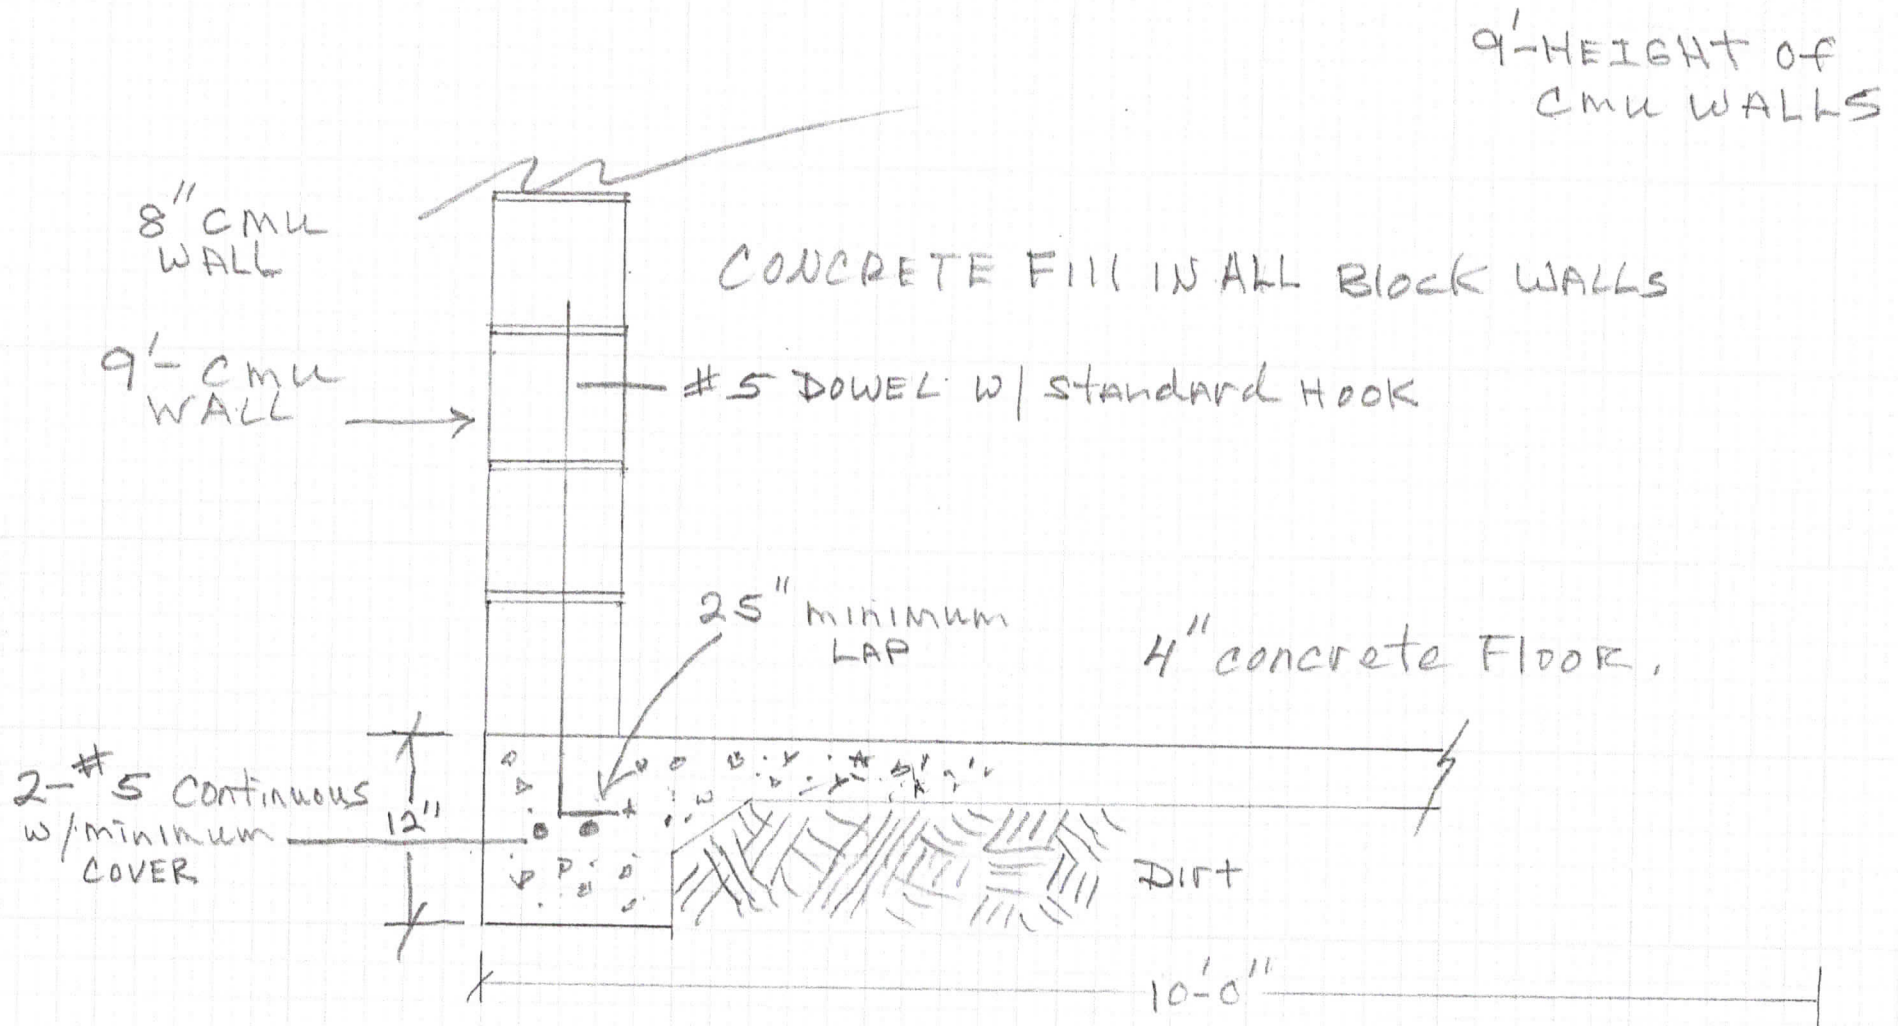 9'-HEIGHt of
CMU WALLS
8" CMU
WALL
CONCRETE Fill IN ALL Block WALLS
9'- CMU
WALL
#5 DOWEL W/ Standard HOOK
25" minimum
LAP
4" concrete Floor.
2-#5 Continuous
w/minimum
COVER
12"
Dirt
10'-0"